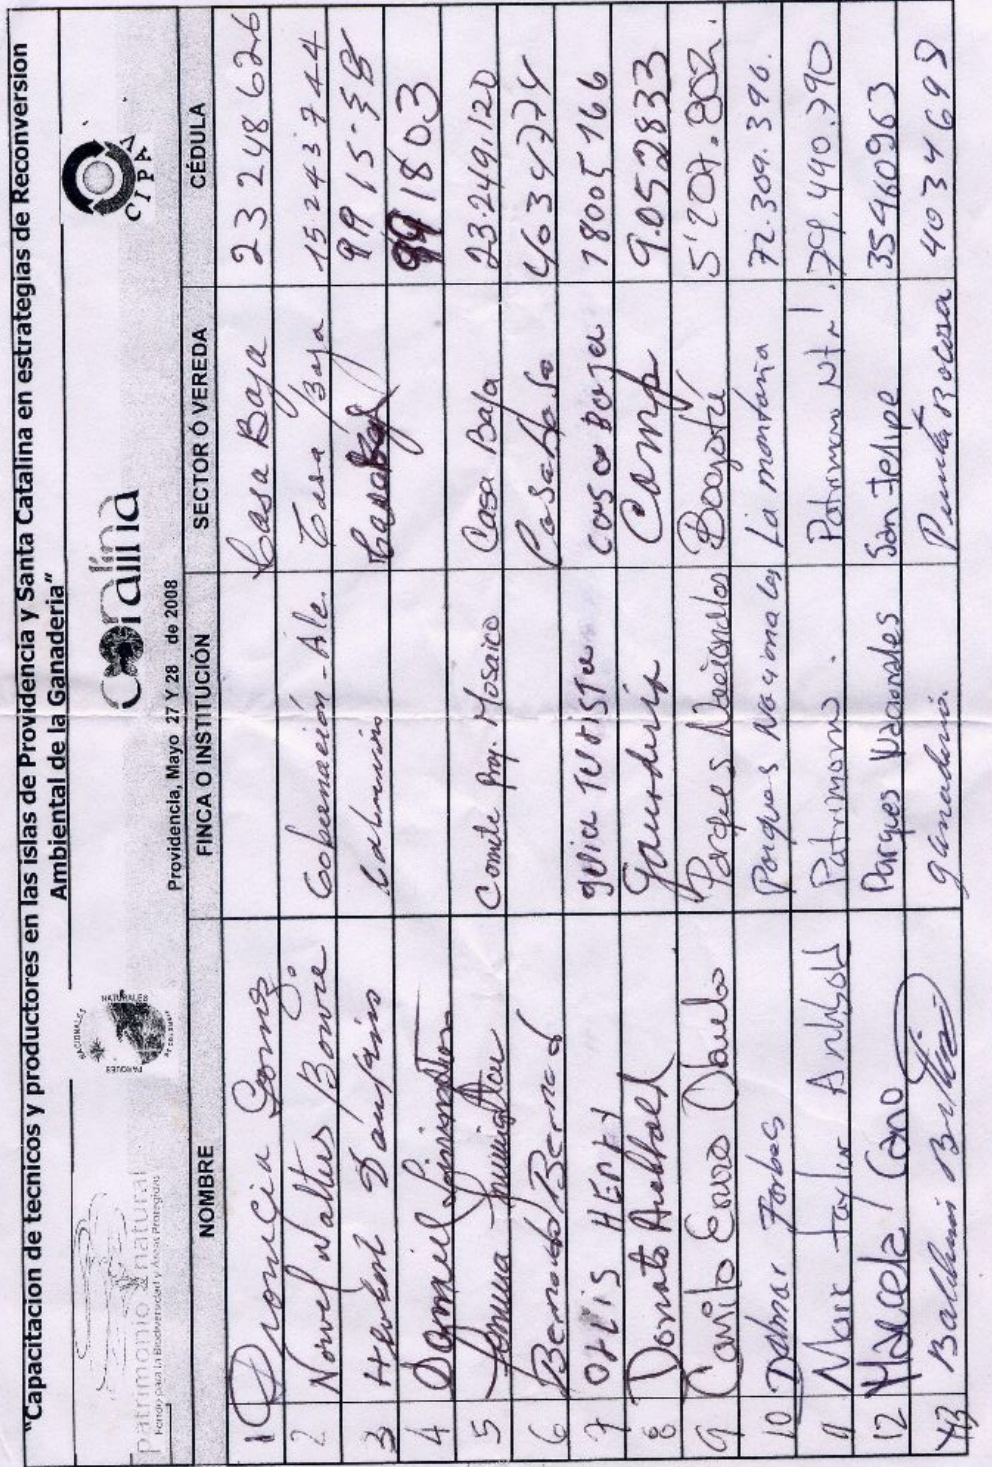 "Capacitacion de tecnicos y productores en las islas de Providencia y Santa Catalina en estrategias de Reconversion
Ambiental de la Ganaderia"
patrimonio & natural
Fondo para la Biodiversidad y Áreas Protegidas
PARQUES NACIONALES NATURALES DE COLOMBIA
coralina
CIPAV
Providencia, Mayo 27 Y 28 de 2008
NOMBRE FINCA O INSTITUCIÓN SECTOR Ó VEREDA CÉDULA
1 Gomez Casa Baja 23248626
2 Norvel Walters Bowie Gobernacion - Alc. Casa Baja 15243744
3 Casa Baja
4 Daniel Livingston 991803
5 Comite Proy. Mosaico Casa Baja 23.249.120
6 Bernardo Bernard Casa Baja 4034774
7 HENRY TURISTA casa baja 18005166
8 Donato Archbold Ganaderia Camp 9.052833
9 Camilo Erazo Obando Parques Nacionales Bogotá 5'207.802.
10 Dalmar Forbes Parques Nacionales La montaña 72.309.396.
11 Marc Taylor Archbold Patrimonio. Patrimonio Ntrl. 79.490.790
12 Marcela Cano Parques Nacionales San Felipe 35460963
13 ganaderia. Punta Rocosa 4034698